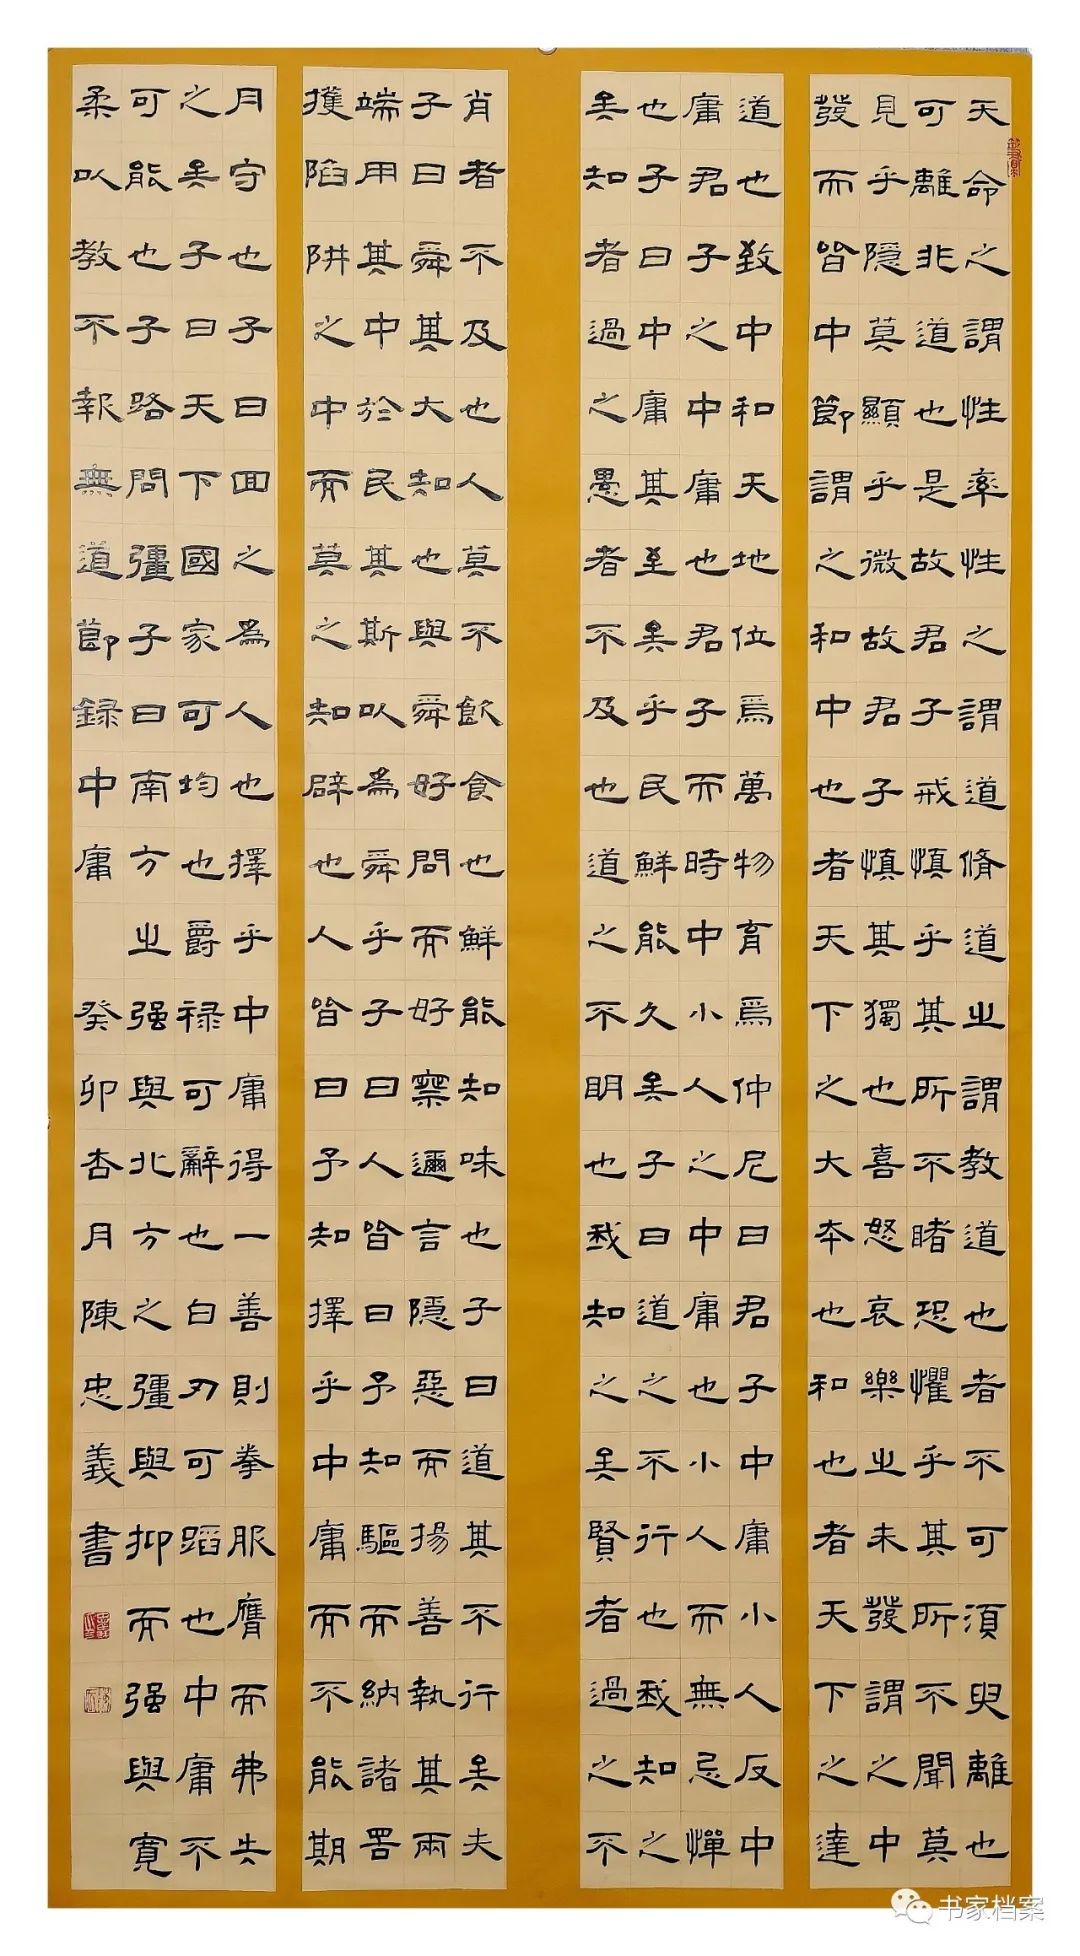 天命之謂性率性之謂道脩道之謂教道也者不可須臾離也
可離非道也是故君子戒慎乎其所不睹恐懼乎其所不聞莫
見乎隱莫顯乎微故君子慎其獨也喜怒哀樂之未發謂之中
發而皆中節謂之和中也者天下之大本也和也者天下之達
道也致中和天地位焉萬物育焉仲尼曰君子中庸小人反中
庸君子之中庸也君子而時中小人之中庸也小人而無忌憚
也子曰中庸其至矣乎民鮮能久矣子曰道之不行也我知之
矣知者過之愚者不及也道之不明也我知之矣賢者過之不
肖者不及也人莫不飲食也鮮能知味也子曰道其不行矣夫
子曰舜其大知也與舜好問而好察邇言隱惡而揚善執其兩
端用其中於民其斯以為舜乎子曰人皆曰予知驅而納諸罟
擭陷阱之中而莫之知辟也人皆曰予知擇乎中庸而不能期
月守也子曰回之為人也擇乎中庸得一善則拳服膺而弗失
之矣子曰天下國家可均也爵祿可辭也白刃可蹈也中庸不
可能也子路問彊子曰南方之强與北方之彊與抑而强與寬
柔以教不報無道節録中庸 癸卯杏月陳忠義書
书家档案